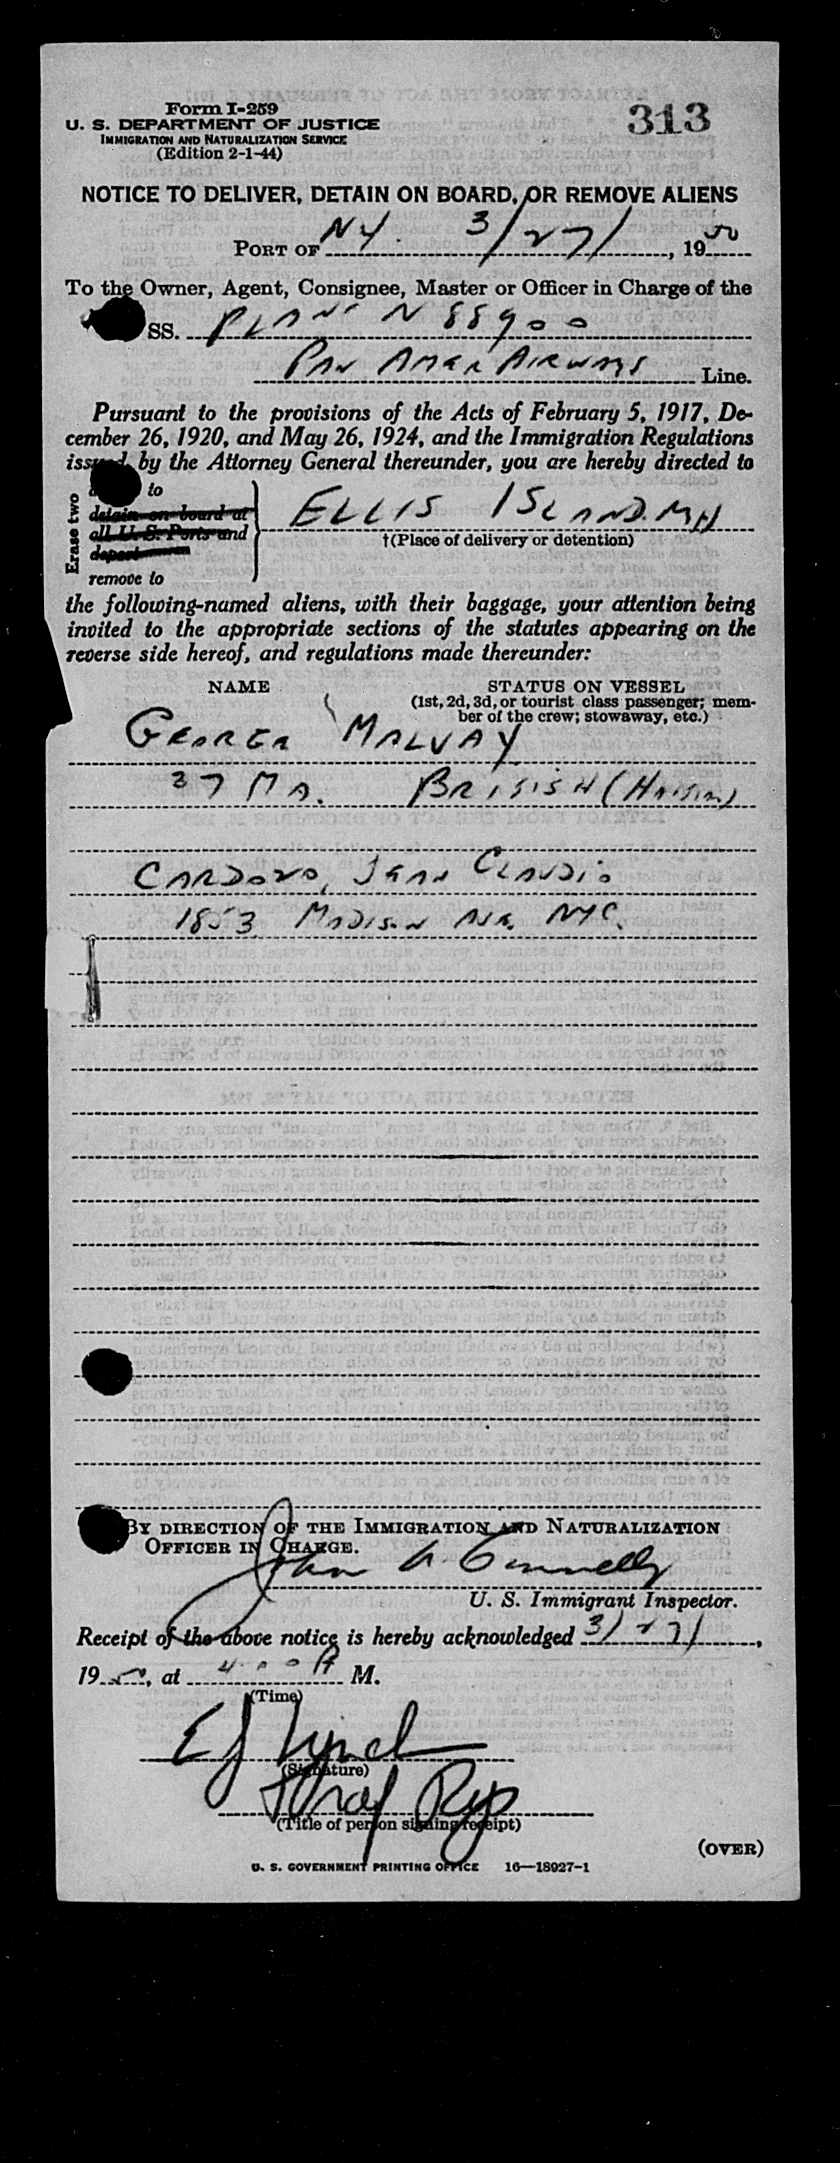 Form I-259
313
U. S. DEPARTMENT OF JUSTICE
IMMIGRATION AND NATURALIZATION SERVICE
(Edition 2-1-44)
NOTICE TO DELIVER, DETAIN ON BOARD, OR REMOVE ALIENS
PORT OF NY. 3/27/, 1950
To the Owner, Agent, Consignee, Master or Officer in Charge of the
SS. PLANE N 88900
PAN AMER AIRWAYS Line.
Pursuant to the provisions of the Acts of February 5, 1917, De-
cember 26, 1920, and May 26, 1924, and the Immigration Regulations
issued by the Attorney General thereunder, you are hereby directed to
Erase two
to
detain on board at
all U. S. Ports and
deport
remove to
ELLIS ISLAND.
†(Place of delivery or detention)
the following-named aliens, with their baggage, your attention being
invited to the appropriate sections of the statutes appearing on the
reverse side hereof, and regulations made thereunder:
NAME STATUS ON VESSEL
(1st, 2d, 3d, or tourist class passenger; mem-
ber of the crew; stowaway, etc.)
GEORGE MALVAY
37 MA. BRITISH
CARDOVO, JEAN CLAUDIO
1853 MADISON AVE. NYC.
BY DIRECTION OF THE IMMIGRATION AND NATURALIZATION
OFFICER IN CHARGE.
John A. Connelly
U. S. Immigrant Inspector.
Receipt of the above notice is hereby acknowledged 3/27/,
1950, at 400 A M.
(Time)
EJ Lynch
(Signature)
Traf Rep
(Title of person signing receipt)
(OVER)
U. S. GOVERNMENT PRINTING OFFICE 16—18927-1